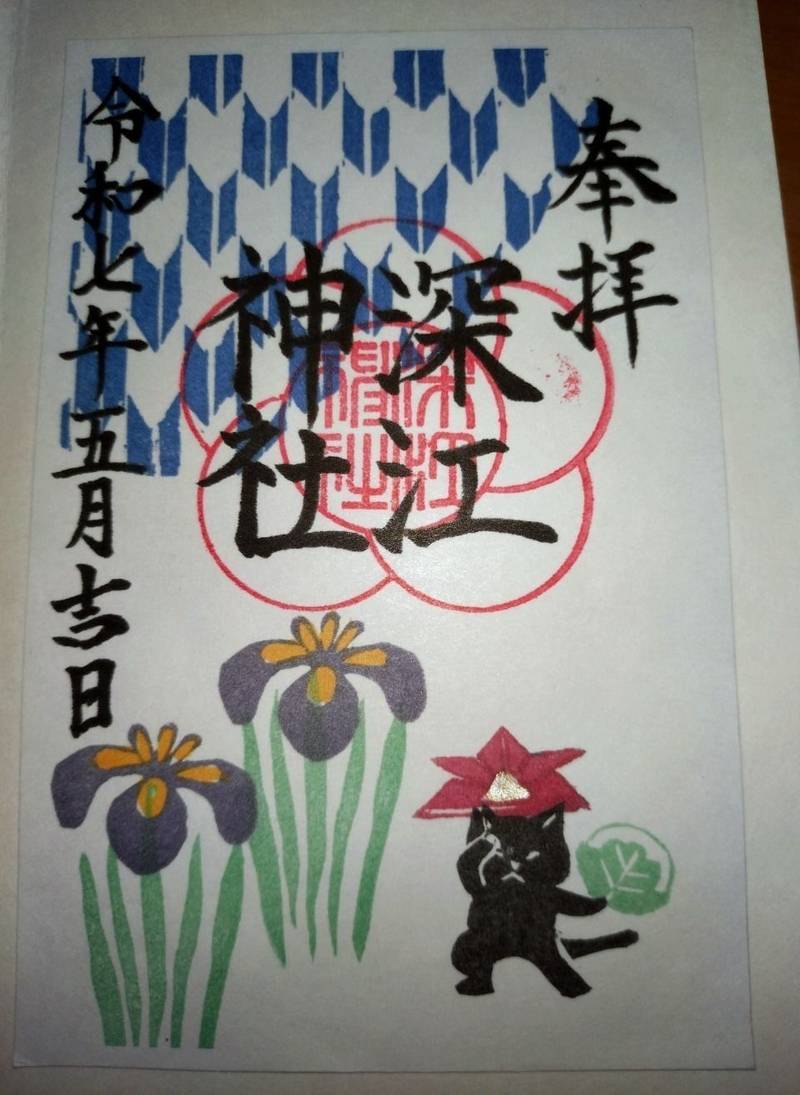 奉拝
深江
神社
深江
稲荷
神社
令和七年五月吉日